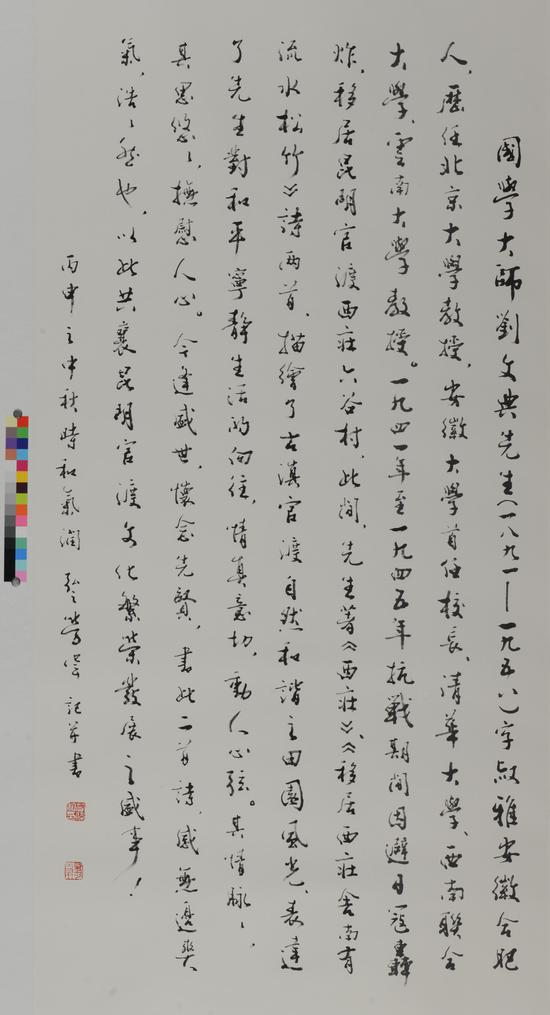 國學大師劉文典先生(一八九一—一九五八)字叔雅安徽合肥
人,歷任北京大學教授,安徽大學首任校長,清華大學、西南聯合
大學、雲南大學教授。一九四一年至一九四五年抗戰期間因避日寇轟
炸,移居昆明官渡西莊六谷村,此間,先生著《西莊》、《移居西莊舍南有
流水松竹》詩兩首,描繪了古滇官渡自然和諧之田園風光,表達
了先生對和平寧靜生活的向往,情真意切,動人心弦。其情脉〻,
其思悠〻,撫慰人心。今逢盛世,懷念先賢,書此二首詩,感無邊
氣,浩〻然也,以此共襄昆明官渡文化繁榮發展之盛事!
丙申之中秋時和氣潤 記并書